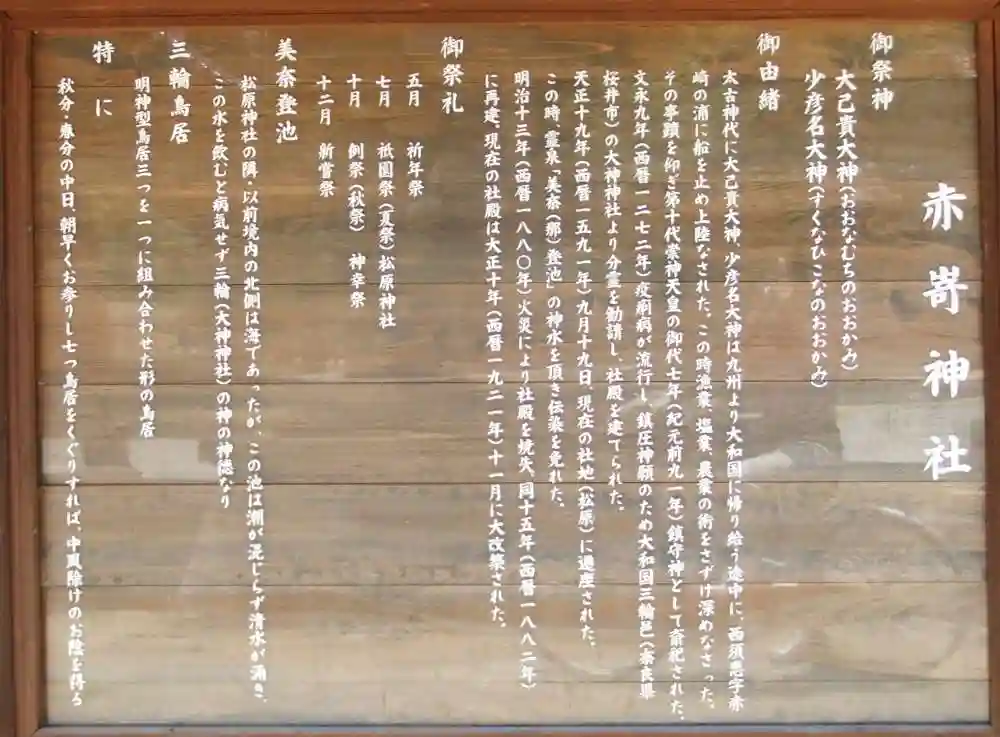 赤嵜神社
御祭神
大己貴大神(おおなむちのおおかみ)
少彦名大神(すくなひこなのおおかみ)
御由緒
太古神代に大己貴大神、少彦名大神は九州より大和国に帰り給う途中に、西須恵字赤
崎の浦に船を止め上陸なされた。この時漁業、塩業、農業の術をさずけ深めなさった。
その事蹟を仰ぎ第十代崇神天皇の御代七年(紀元前九一年)鎮守神として斎祀された。
文永九年(西暦一二七二年)疫痢病が流行し、鎮圧神願のため大和国三輪邑(奈良県
桜井市)の大神神社より分霊を勧請し、社殿を建てられた。
天正十九年(西暦一五九一年)九月十九日、現在の社地(松原)に遷座された。
この時、霊泉「美奈(那)登池」の神水を頂き伝染を免れた。
明治十三年(西暦一八八〇年)火災により社殿を焼失、同十五年(西暦一八八二年)
に再建、現在の社殿は大正十年(西暦一九二一年)十一月に大改築された。
御祭礼
五月 祈年祭
七月 祇園祭(夏祭)松原神社
十月 例祭(秋祭) 神幸祭
十二月 新嘗祭
美奈登池
松原神社の隣・以前境内の北側は海であったが、この池は潮が混じらず清水が涌き、
この水を飲むと病気せず三輪(大神神社)の神の神徳なり
三輪鳥居
明神型鳥居三つを一つに組み合わせた形の鳥居
特に
秋分・春分の中日、朝早くお参りし七つ鳥居をくぐりすれば、中風除けのお陰を得る